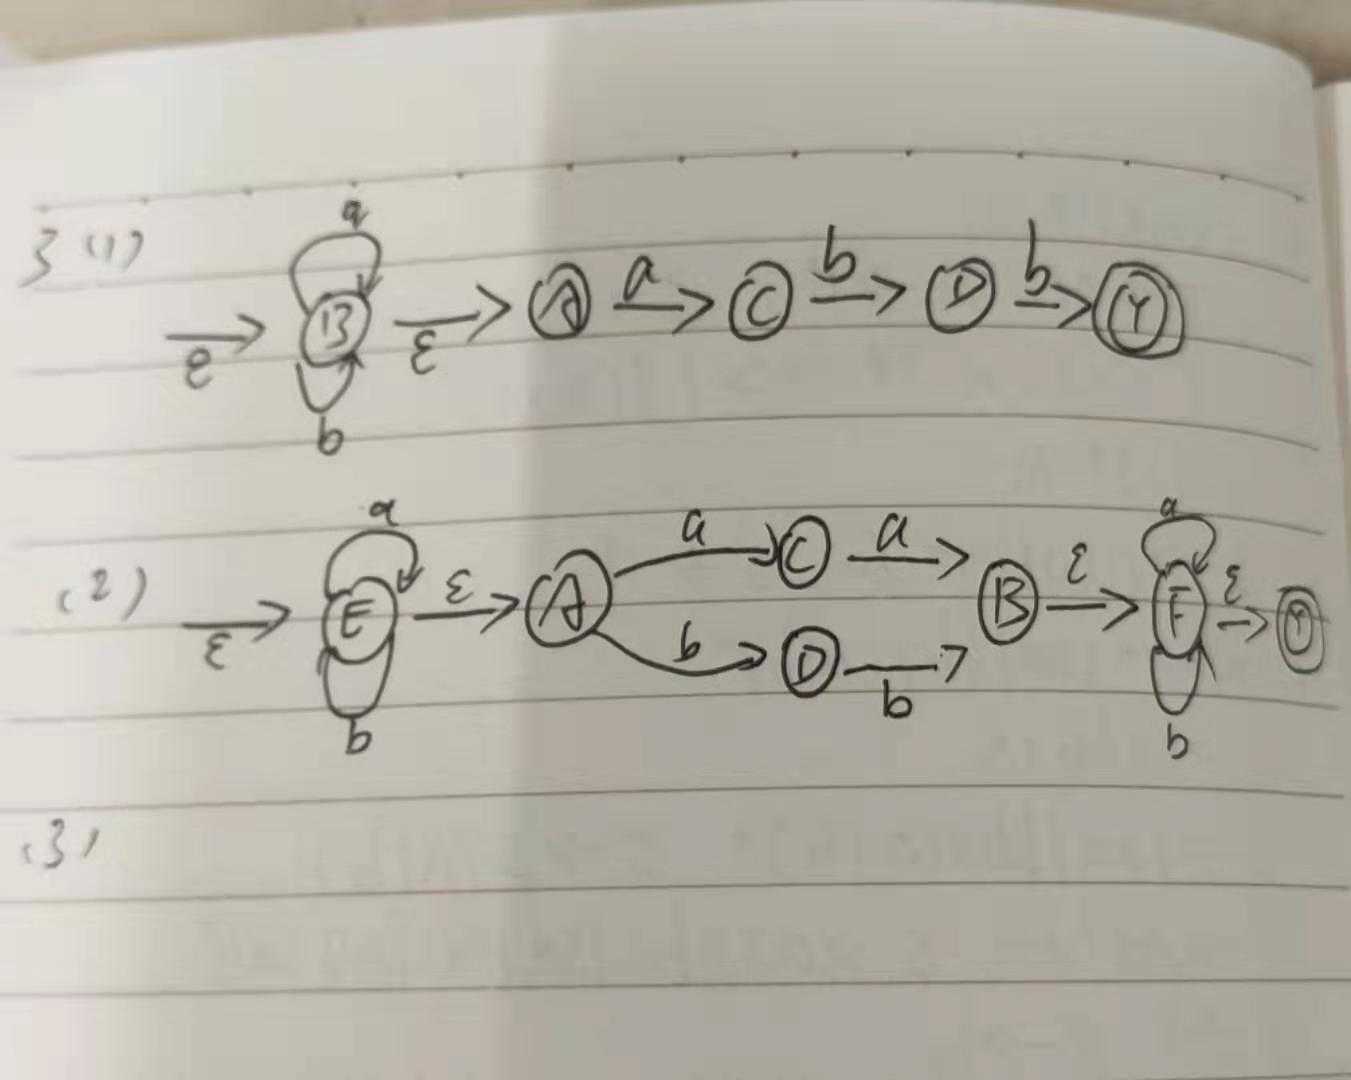 3 (1)
a
ε B ε A a C b D b Y
b
(2)
a a a a
ε E ε A C B ε F ε Y
b D b
b b
(3)